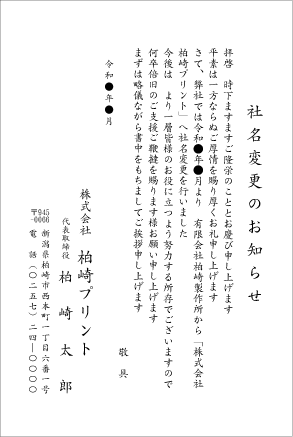 社名変更のお知らせ
拝啓　時下ますますご隆栄のこととお慶び申し上げます
平素は一方ならぬご厚情を賜り厚くお礼申し上げます
さて、弊社では令和●年●月より　有限会社柏崎製作所から「株式会社
柏崎プリント」へ社名変更を行いました
今後は　より一層皆様のお役に立つよう努力する所存でございますので
何卒倍旧のご支援ご鞭撻を賜ります様お願い申し上げます
まずは略儀ながら書中をもちましてご挨拶申し上げます
敬具
令和●年●月
株式会社　柏崎プリント
代表取締役　柏崎太郎
〒945-0066　新潟県柏崎市西本町一丁目六番一号
電話（〇二五七）二四―〇〇〇〇